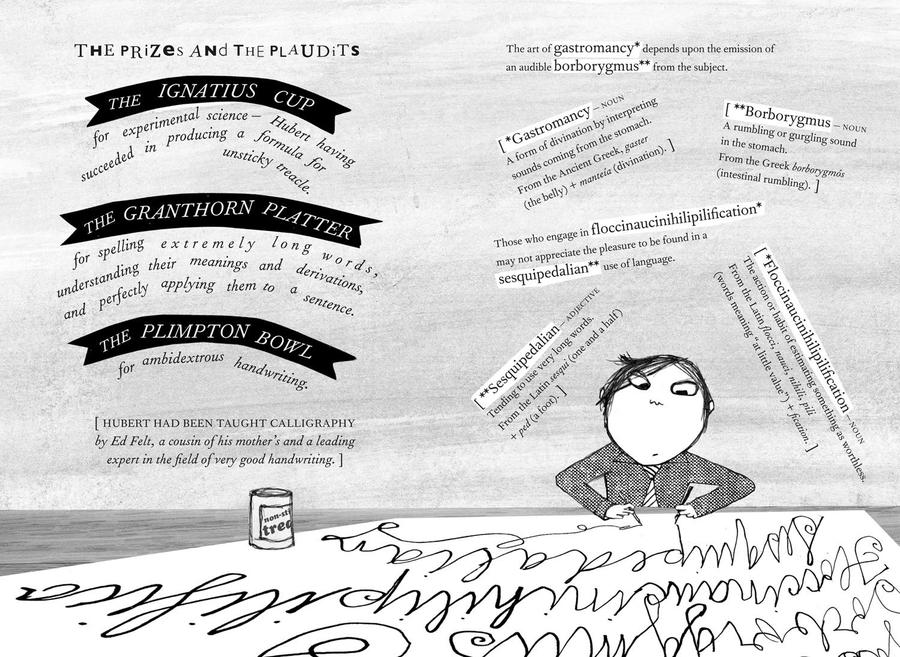 THE PRiZes ANd THE PLAUDiTS
THE IGNATIUS CUP
for experimental science – Hubert having
succeeded in producing a formula for
unsticky treacle.
THE GRANTHORN PLATTER
for spelling extremely long words,
understanding their meanings and derivations,
and perfectly applying them to a sentence.
THE PLIMPTON BOWL
for ambidextrous handwriting.
[ HUBERT HAD BEEN TAUGHT CALLIGRAPHY
by Ed Felt, a cousin of his mother's and a leading
expert in the field of very good handwriting. ]
The art of gastromancy* depends upon the emission of
an audible borborygmus** from the subject.
[ *Gastromancy – NOUN
A form of divination by interpreting
sounds coming from the stomach.
From the Ancient Greek, gaster
(the belly) + manteia (divination). ]
[ **Borborygmus – NOUN
A rumbling or gurgling sound
in the stomach.
From the Greek borborygmós
(intestinal rumbling). ]
Those who engage in floccinaucinihilipilification*
may not appreciate the pleasure to be found in a
sesquipedalian** use of language.
[ **Sesquipedalian – ADJECTIVE
Tending to use very long words.
From the Latin sesqui (one and a half)
+ ped (a foot). ]
[ *Floccinaucinihilipilification – NOUN
The action or habit of estimating something as worthless.
From the Latin flocci, nauci, nihili, pili
(words meaning “at little value”) + fication. ]
non-sti
trea
sesquipedalian
floccinaucinihilipilifica